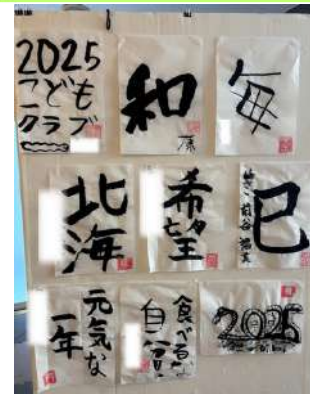 2025
こども
クラブ
和
毎
北海
希望
巳
元気な
一年
食べる
2025